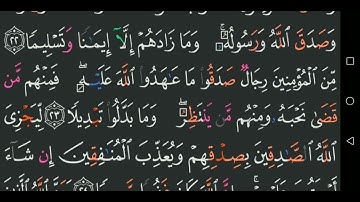 وَصَدَقَ ٱللَّهُ وَرَسُولُهُۥۚ وَمَا زَادَهُمْ إِلَّآ إِيمَٰنًا وَتَسْلِيمًا ٢٢
مِّنَ ٱلْمُؤْمِنِينَ رِجَالٌ صَدَقُوا۟ مَا عَٰهَدُوا۟ ٱللَّهَ عَلَيْهِۖ فَمِنْهُم مَّن
قَضَىٰ نَحْبَهُۥ وَمِنْهُم مَّن يَنتَظِرُۖ وَمَا بَدَّلُوا۟ تَبْدِيلًا ٢٣ لِّيَجْزِىَ
ٱللَّهُ ٱلصَّٰدِقِينَ بِصِدْقِهِمْ وَيُعَذِّبَ ٱلْمُنَٰفِقِينَ إِن شَآءَ